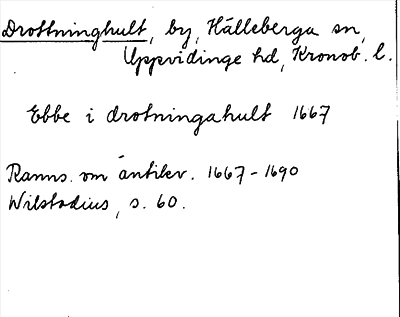 Drottninghult, by, Hälleberga sn,
Uppvidinge hd, Kronob. l.
Ebbe i drotningahult 1667
Ranns. om antikv. 1667-1690
Wilstadius, s. 60.